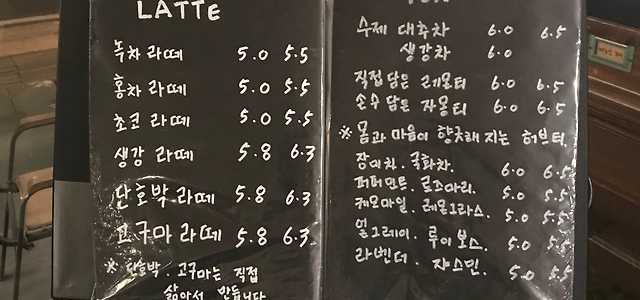 LATTE
녹차 라떼 5.0 5.5
홍차 라떼 5.0 5.5
초코 라떼 5.0 5.5
생강 라떼 5.8 6.3
단호박 라떼 5.8 6.3
고구마 라떼 5.8 6.3
※ 단호박. 고구마는 직접
삶아서 만듭니다
수제 대추차 6.0 6.5
생강차 6.0
직접 담은 레몬티 6.0 6.5
손수 담은 자몽티 6.0 6.5
※ 몸과 마음이 향긋해 지는 허브티.
장미차. 국화차. 6.0 6.5
퍼퍼민트. 로즈마리. 5.0 5.5
캐모마일. 레몬그라스. 5.0 5.5
얼그레이. 루이보스. 5.0 5.5
라벤더. 쟈스민. 5.0 5.5